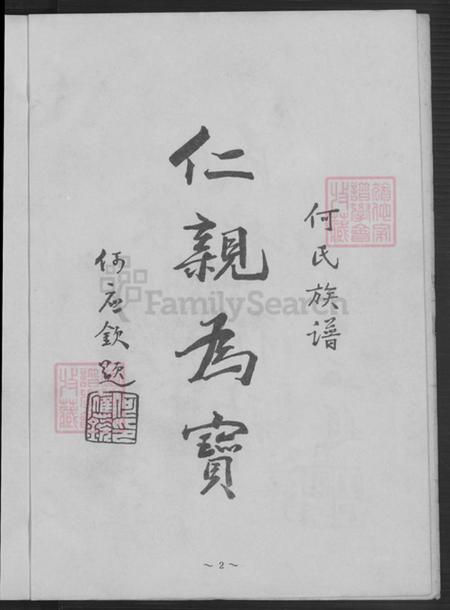 何氏族譜
仁親為寶
何应欽題
FamilySearch
~2~